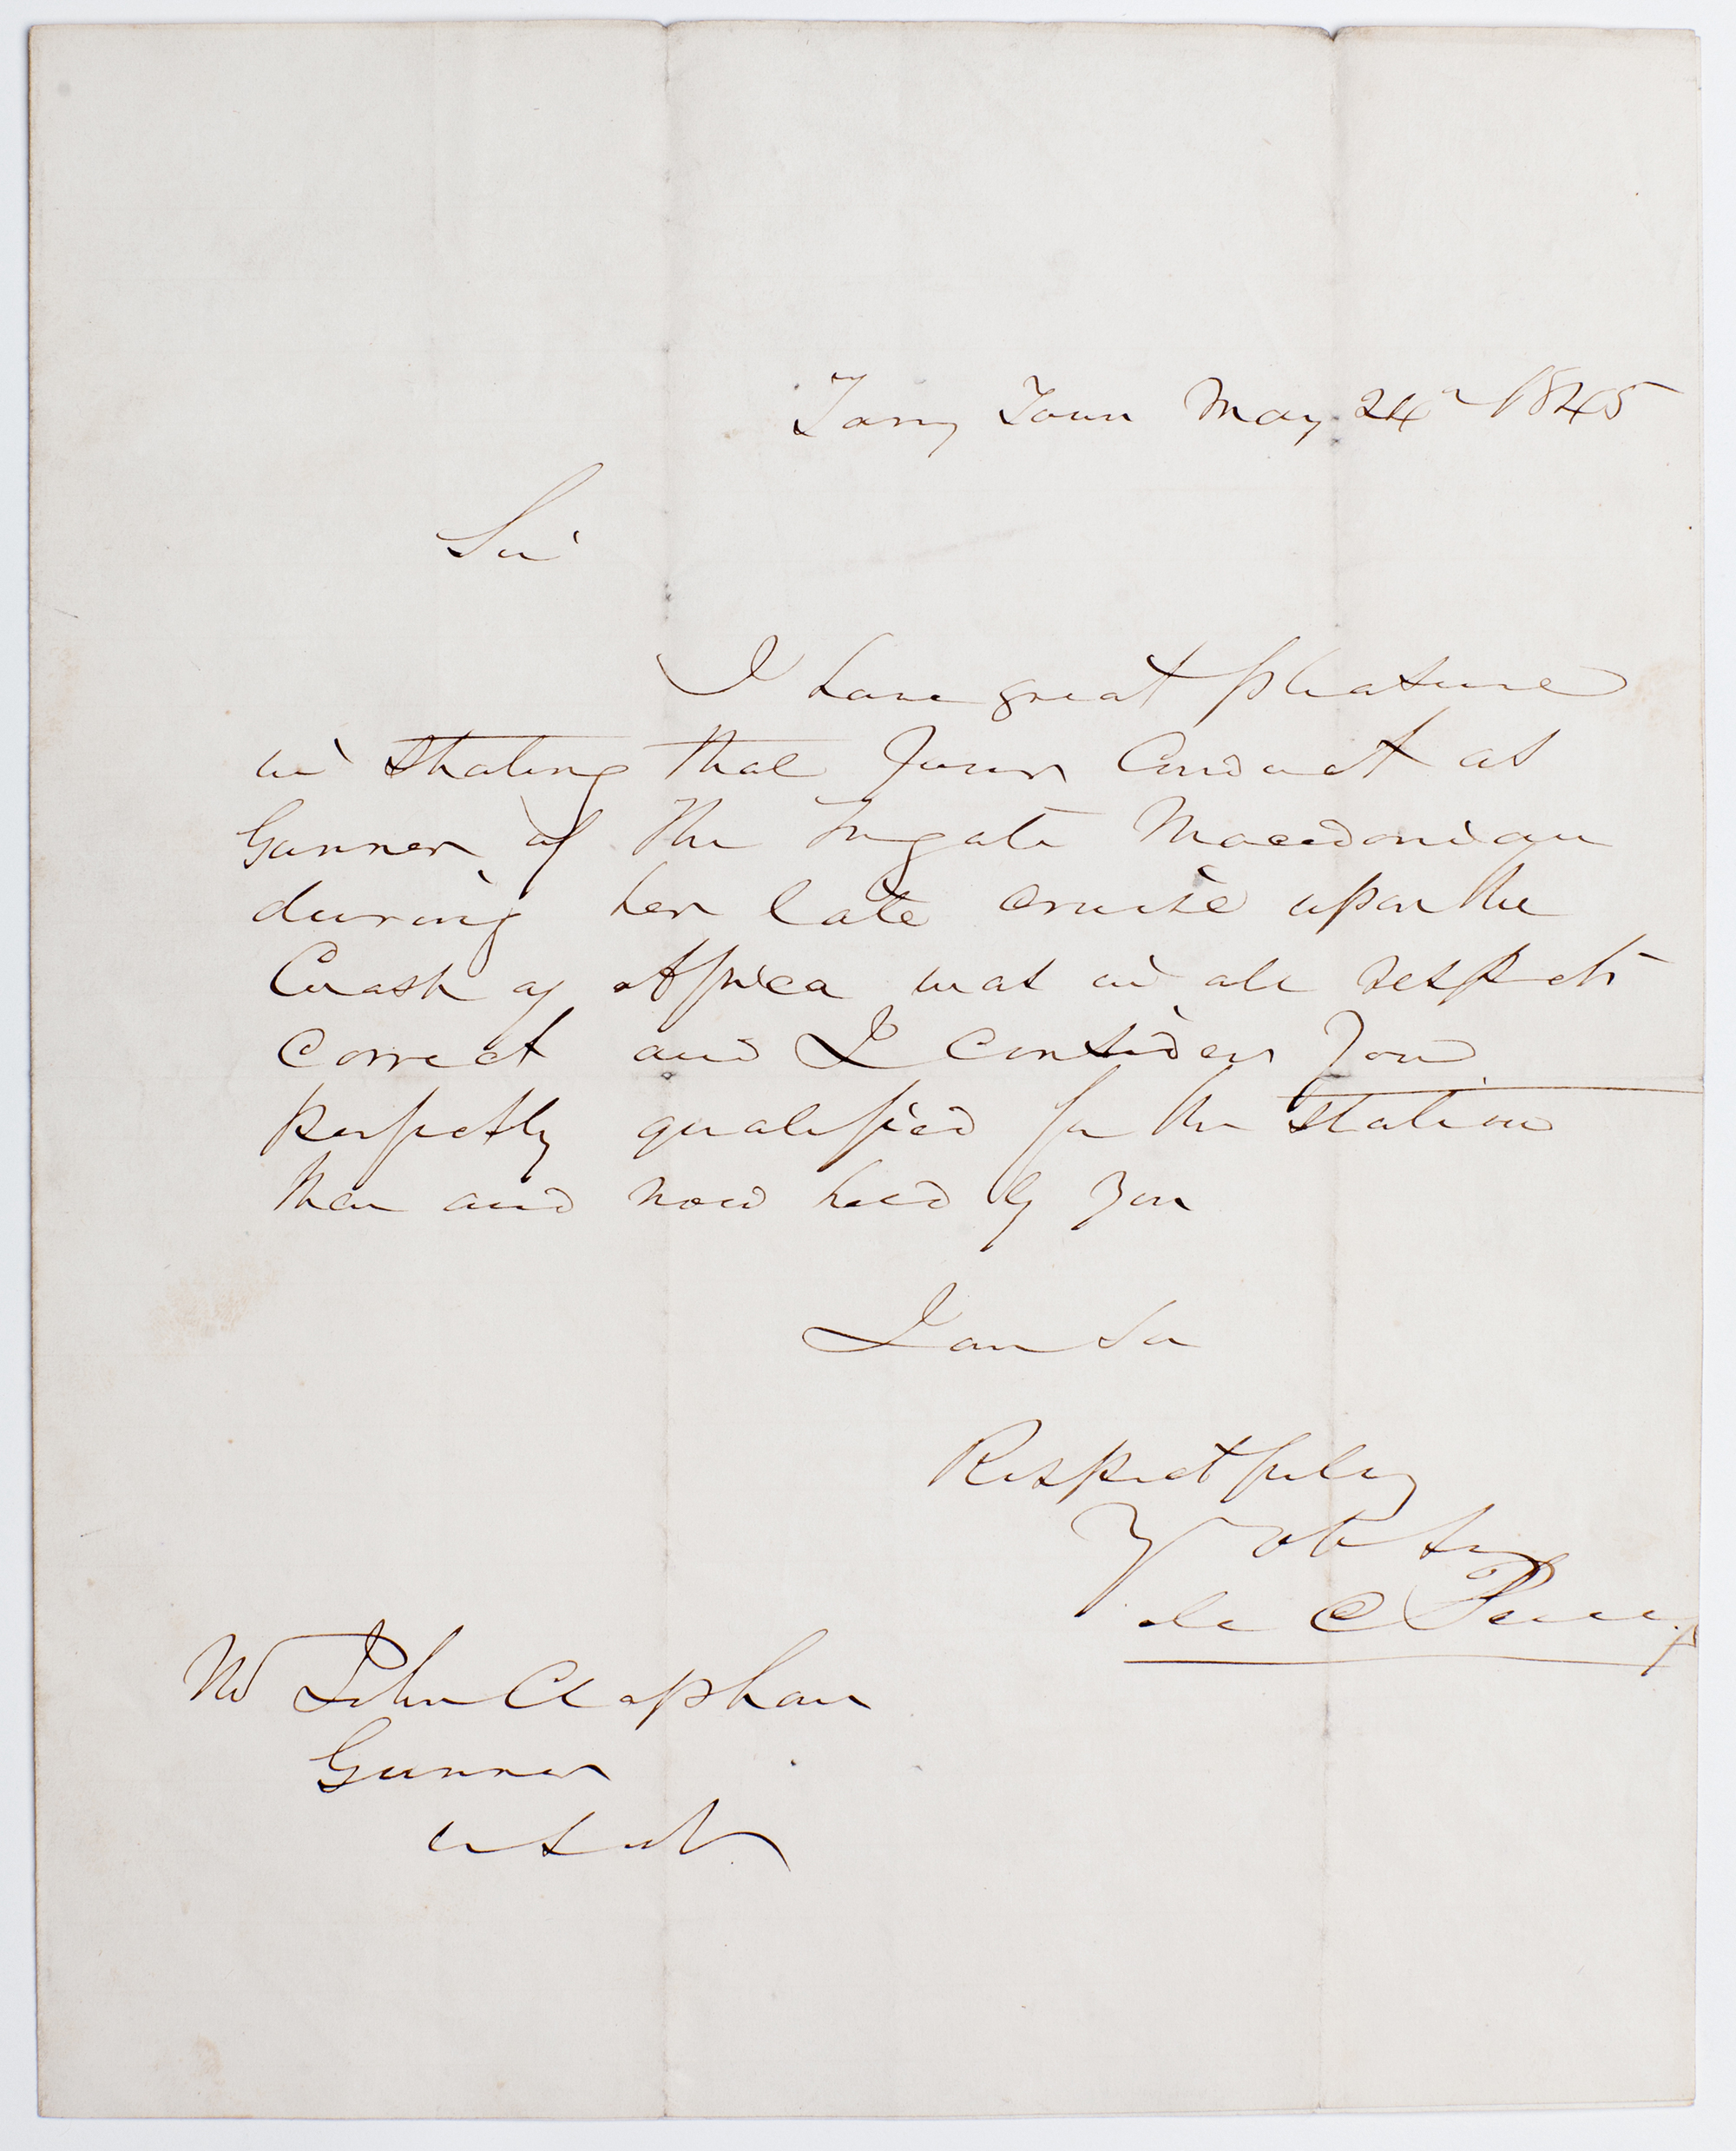 Tarry Town May 24th 1845
Sir
I have great pleasure
in stating that your Conduct as
Gunner of the Frigate Macedonian
during her late cruise upon the
Coast of Africa was in all respects
correct and I consider you
perfectly qualified for the station
then and now held by you
I am Sir
Respectfully
Yr Obt Sv
M C Perry
Mr John Clapham
Gunner
U S N